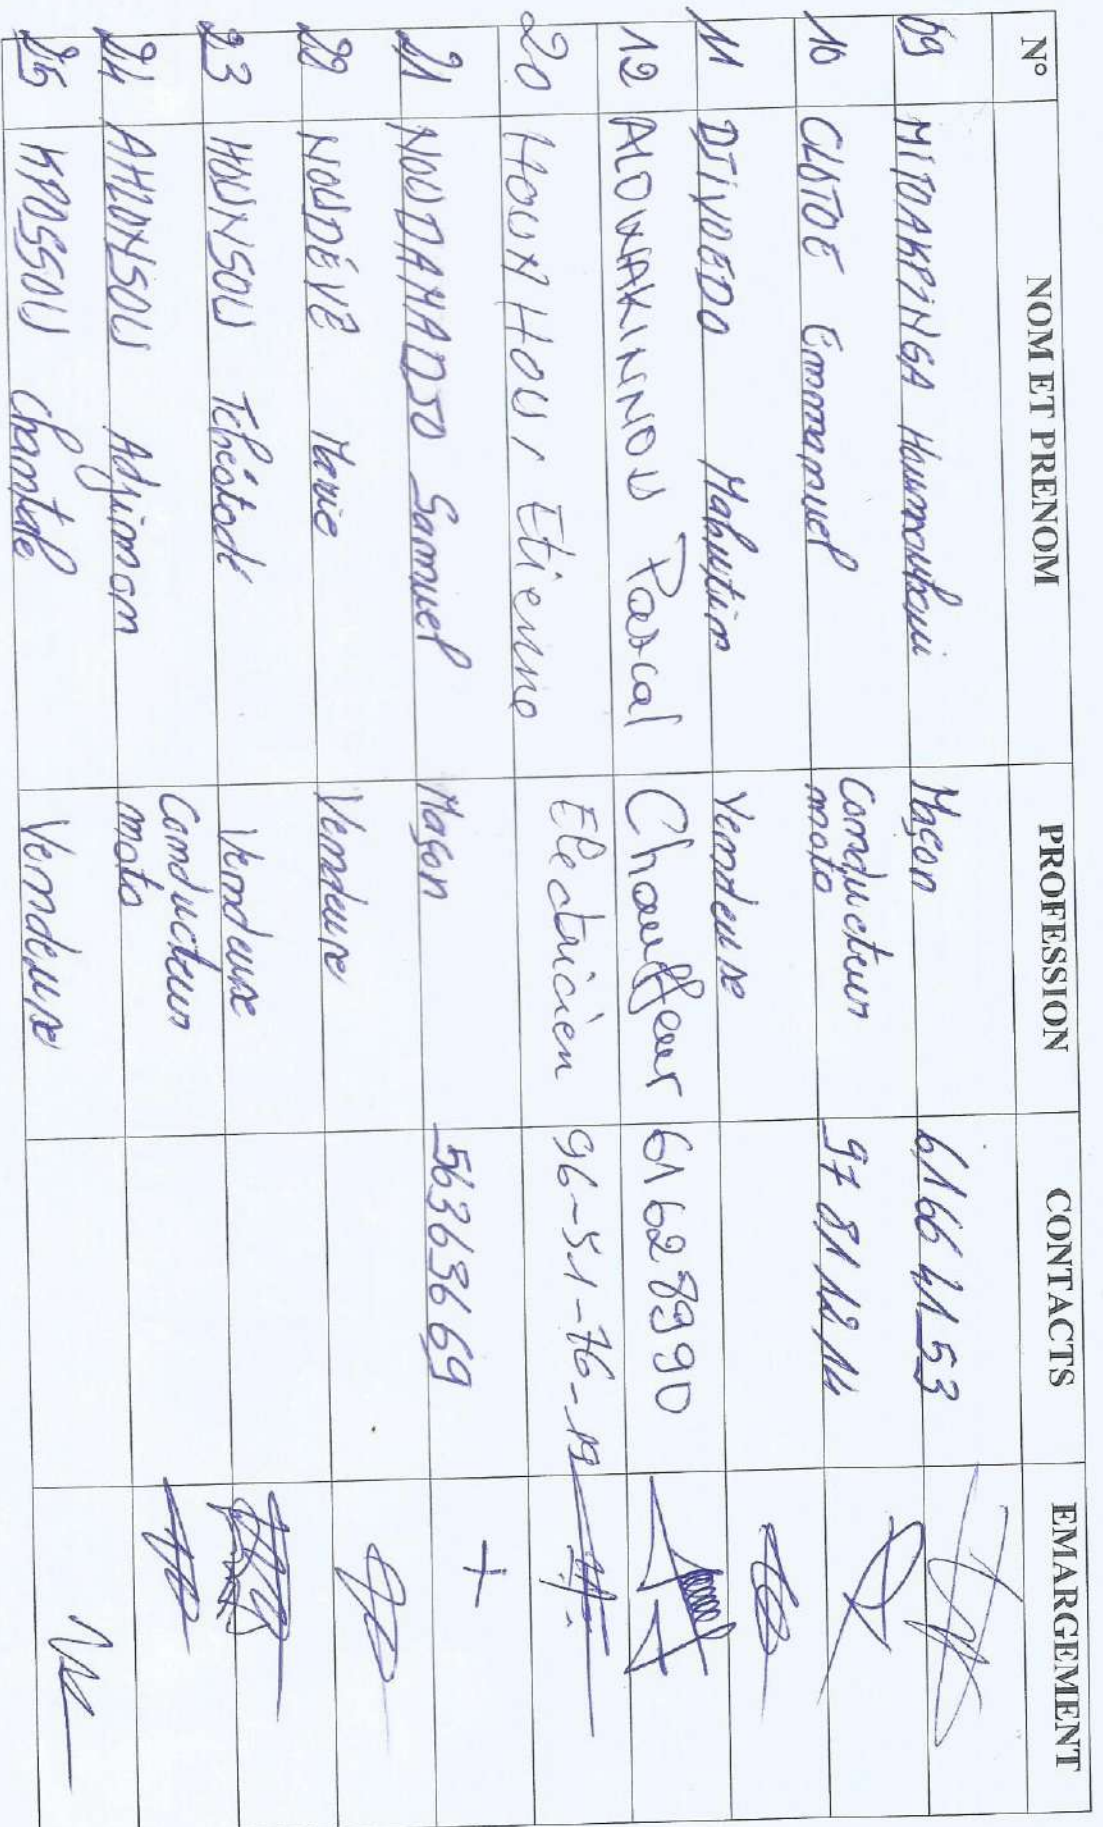 N° NOM ET PRENOM PROFESSION CONTACTS EMARGEMENT
09 MITOAKPINGA Hounnoukoui Maçon 61 66 41 53
10 CLOTOE Emmanuel Conducteur moto 97 81 12 14
11 DJIVOEDO Mahutin Vendeuse
12 ALOWAKINNOU Pascal Chauffeur 61628990
20 HOUNHOUI Etienne Electricien 96-51-76-19
21 NOUDAHADJO Samuel Maçon 56363669
22 NOUDÉVE Marie Vendeuse
23 HOUNSOU Théotode Vendeuse
24 AHLONSOU Adjimon Conducteur moto
25 KPOSSOU Chantale Vendeuse